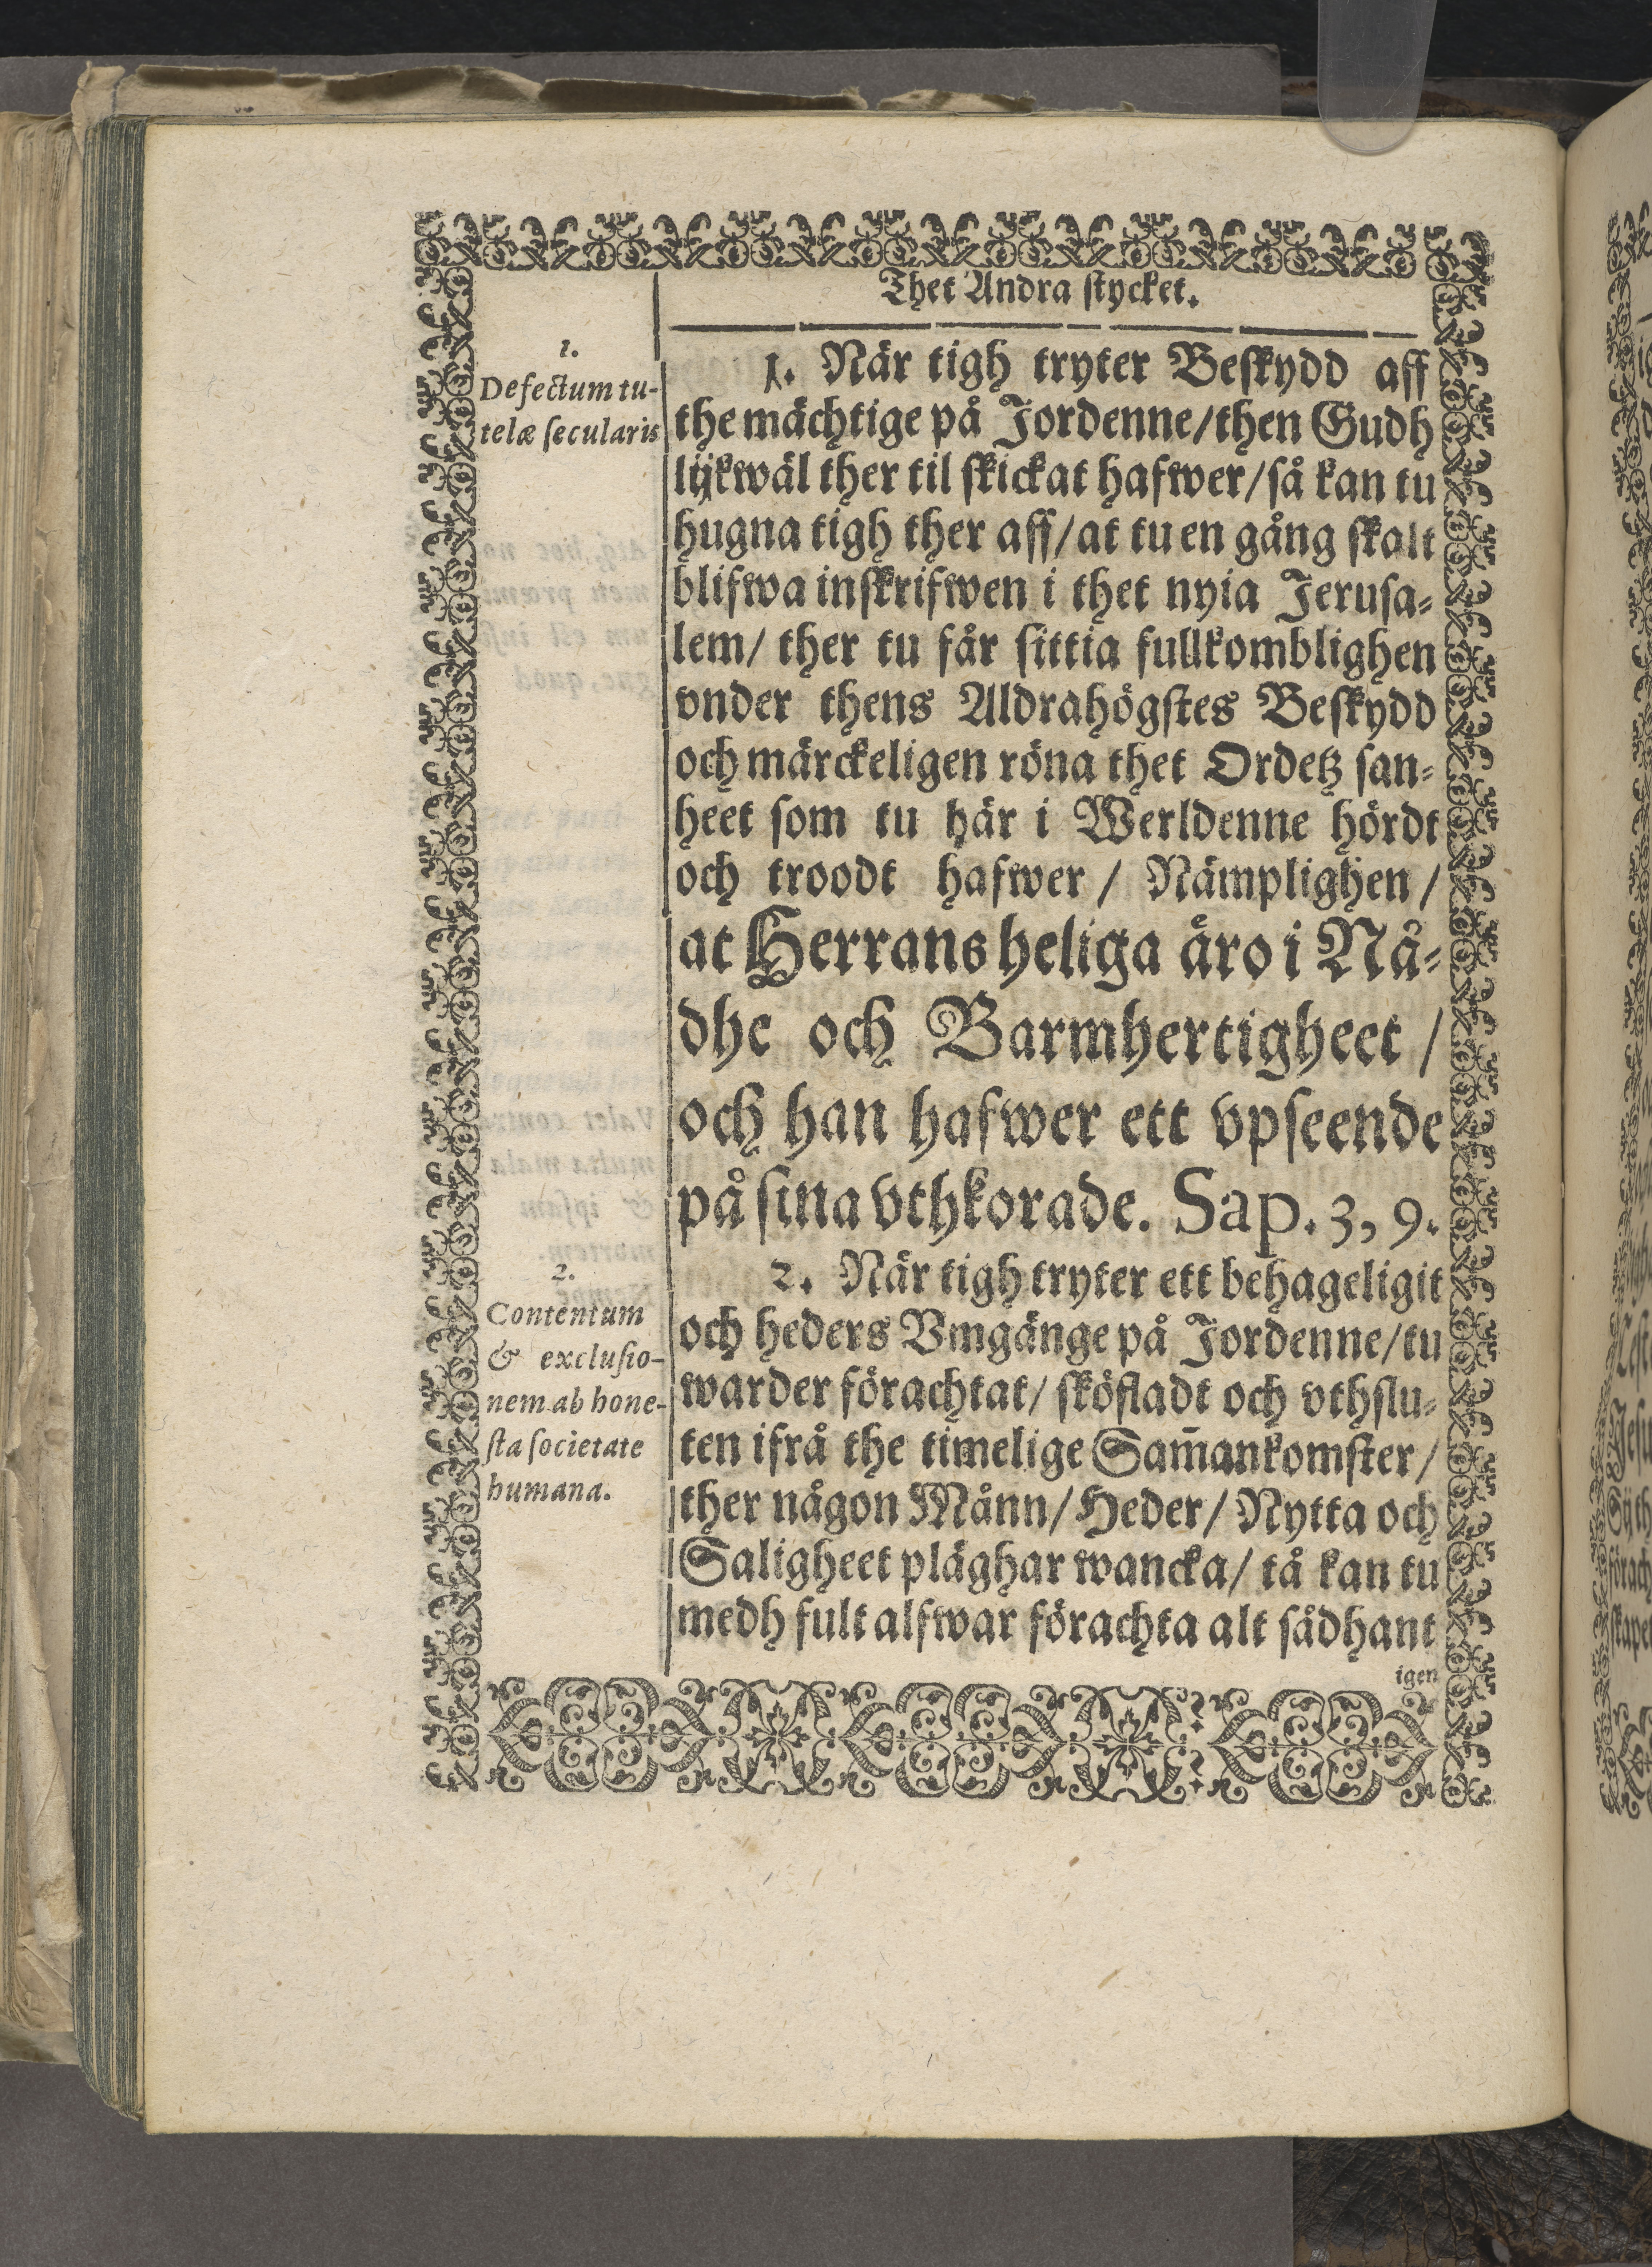 Thet Andra stycket.
1.
Defectum tu-
telæ ſecularis
1. När tigh tryter Beſkydd aff
the mächtige på Jordenne/then Gudh
lijkwäl ther til ſkickat hafwer/ſå kan tu
hugna tigh ther aff/at tu en gång ſkalt
blifwa inſkrifwen i thet nyia Jeruſa⸗
lem/ ther tu får ſittia fullkomblighen
vnder thens Aldrahögſtes Beſkydd
och märckeligen röna thet Ordetz ſan⸗
heet ſom tu här i Werldenne hördt
och troodt hafwer / Nämplighen /
at Herrans heliga äro i Nå⸗
dhe och Barmhertigheet /
och han hafwer ett vpſeende
på ſina vthkorade. Sap. 3, 9.
2.
Contentum
& excluſio-
nem ab hone-
ſta ſocietate
humana.
2. När tigh tryter ett behageligit
och heders Vmgänge på Jordenne/tu
warder förachtat/ ſköfladt och vthſlu⸗
ten ifrå the timelige Sam̃ankomſter/
ther någon Månn/Heder/Nytta och
Saligheet pläghar wancka/ tå kan tu
medh fult alfwar förachta alt ſådhant
igen